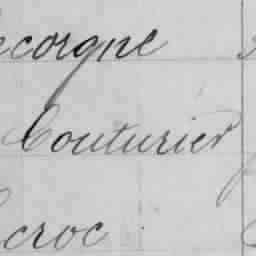 ecorgne
Couturier
croc